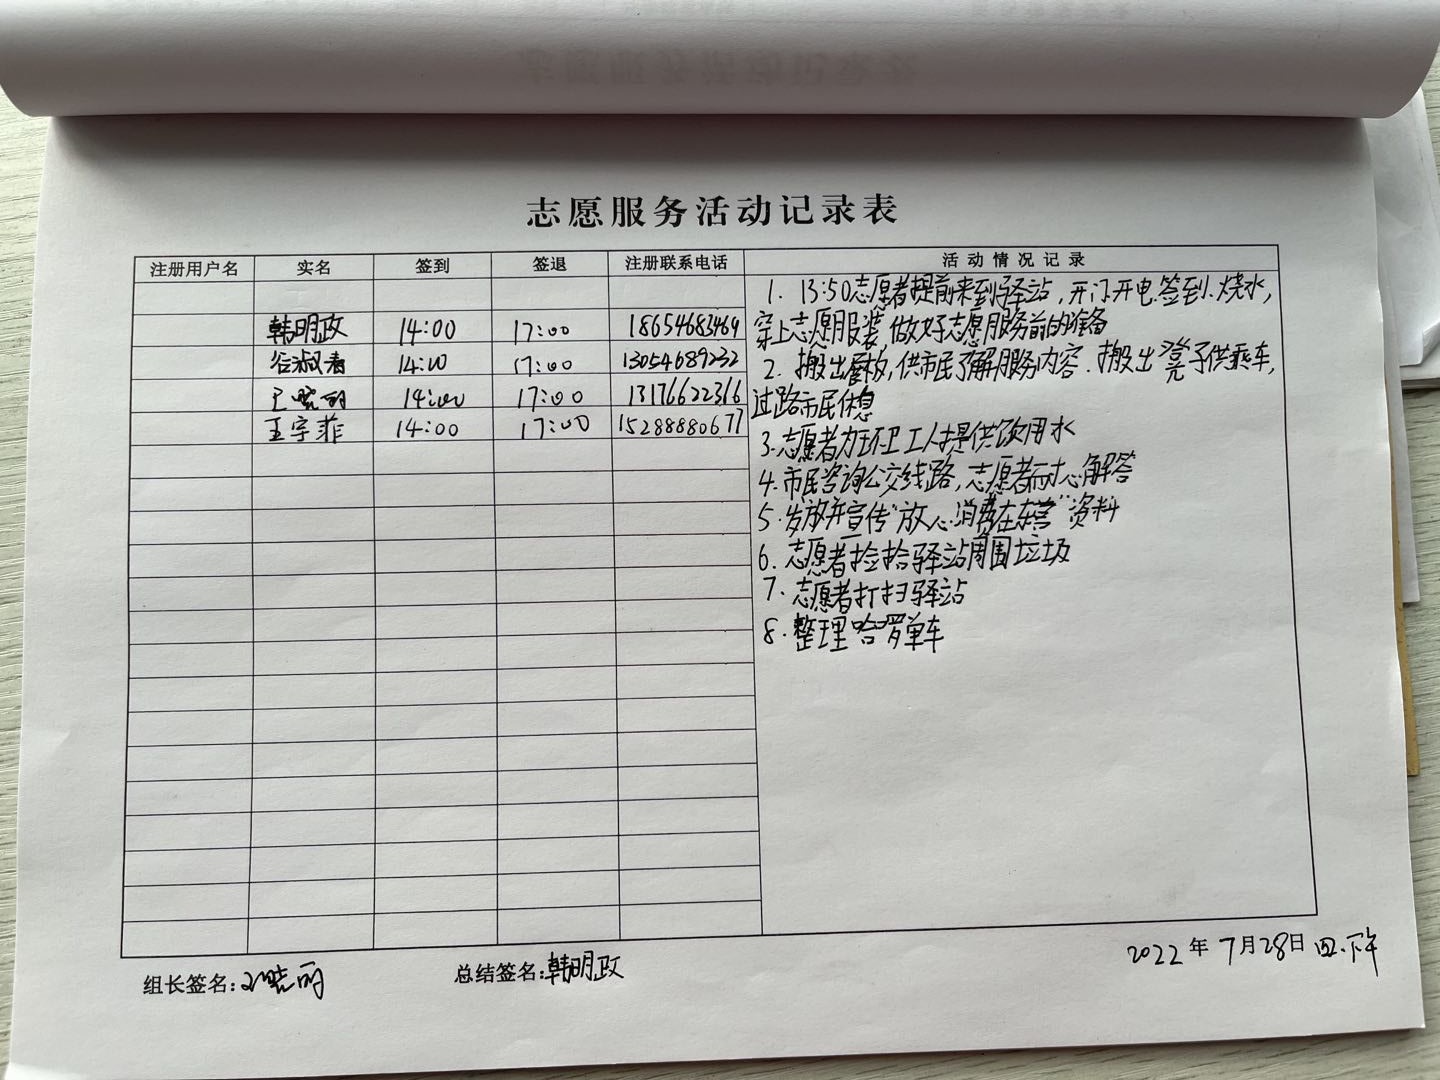 志愿服务活动记录表
注册用户名 实名 签到 签退 注册联系电话 活动情况记录
韩明政 14:00 17:00 18654683469
谷淑春 14:00 17:00 13054689232
王晓丽 14:00 17:00 13176622366
王宇菲 14:00 17:00 15288880677
1. 13:50志愿者提前来到驿站,开门开电.签到.烧水,
穿上志愿服装,做好志愿服务前的准备
2. 搬出展板,供市民了解服务内容.搬出凳子供乘车,
过路市民休息
3.志愿者为环卫工人提供饮用水
4.市民咨询公交线路,志愿者耐心解答
5.发放并宣传"放心消费在东营"资料
6.志愿者捡拾驿站周围垃圾
7.志愿者打扫驿站
8.整理哈啰单车
组长签名:王晓丽 总结签名:韩明政 2022年7月28日 四.下午